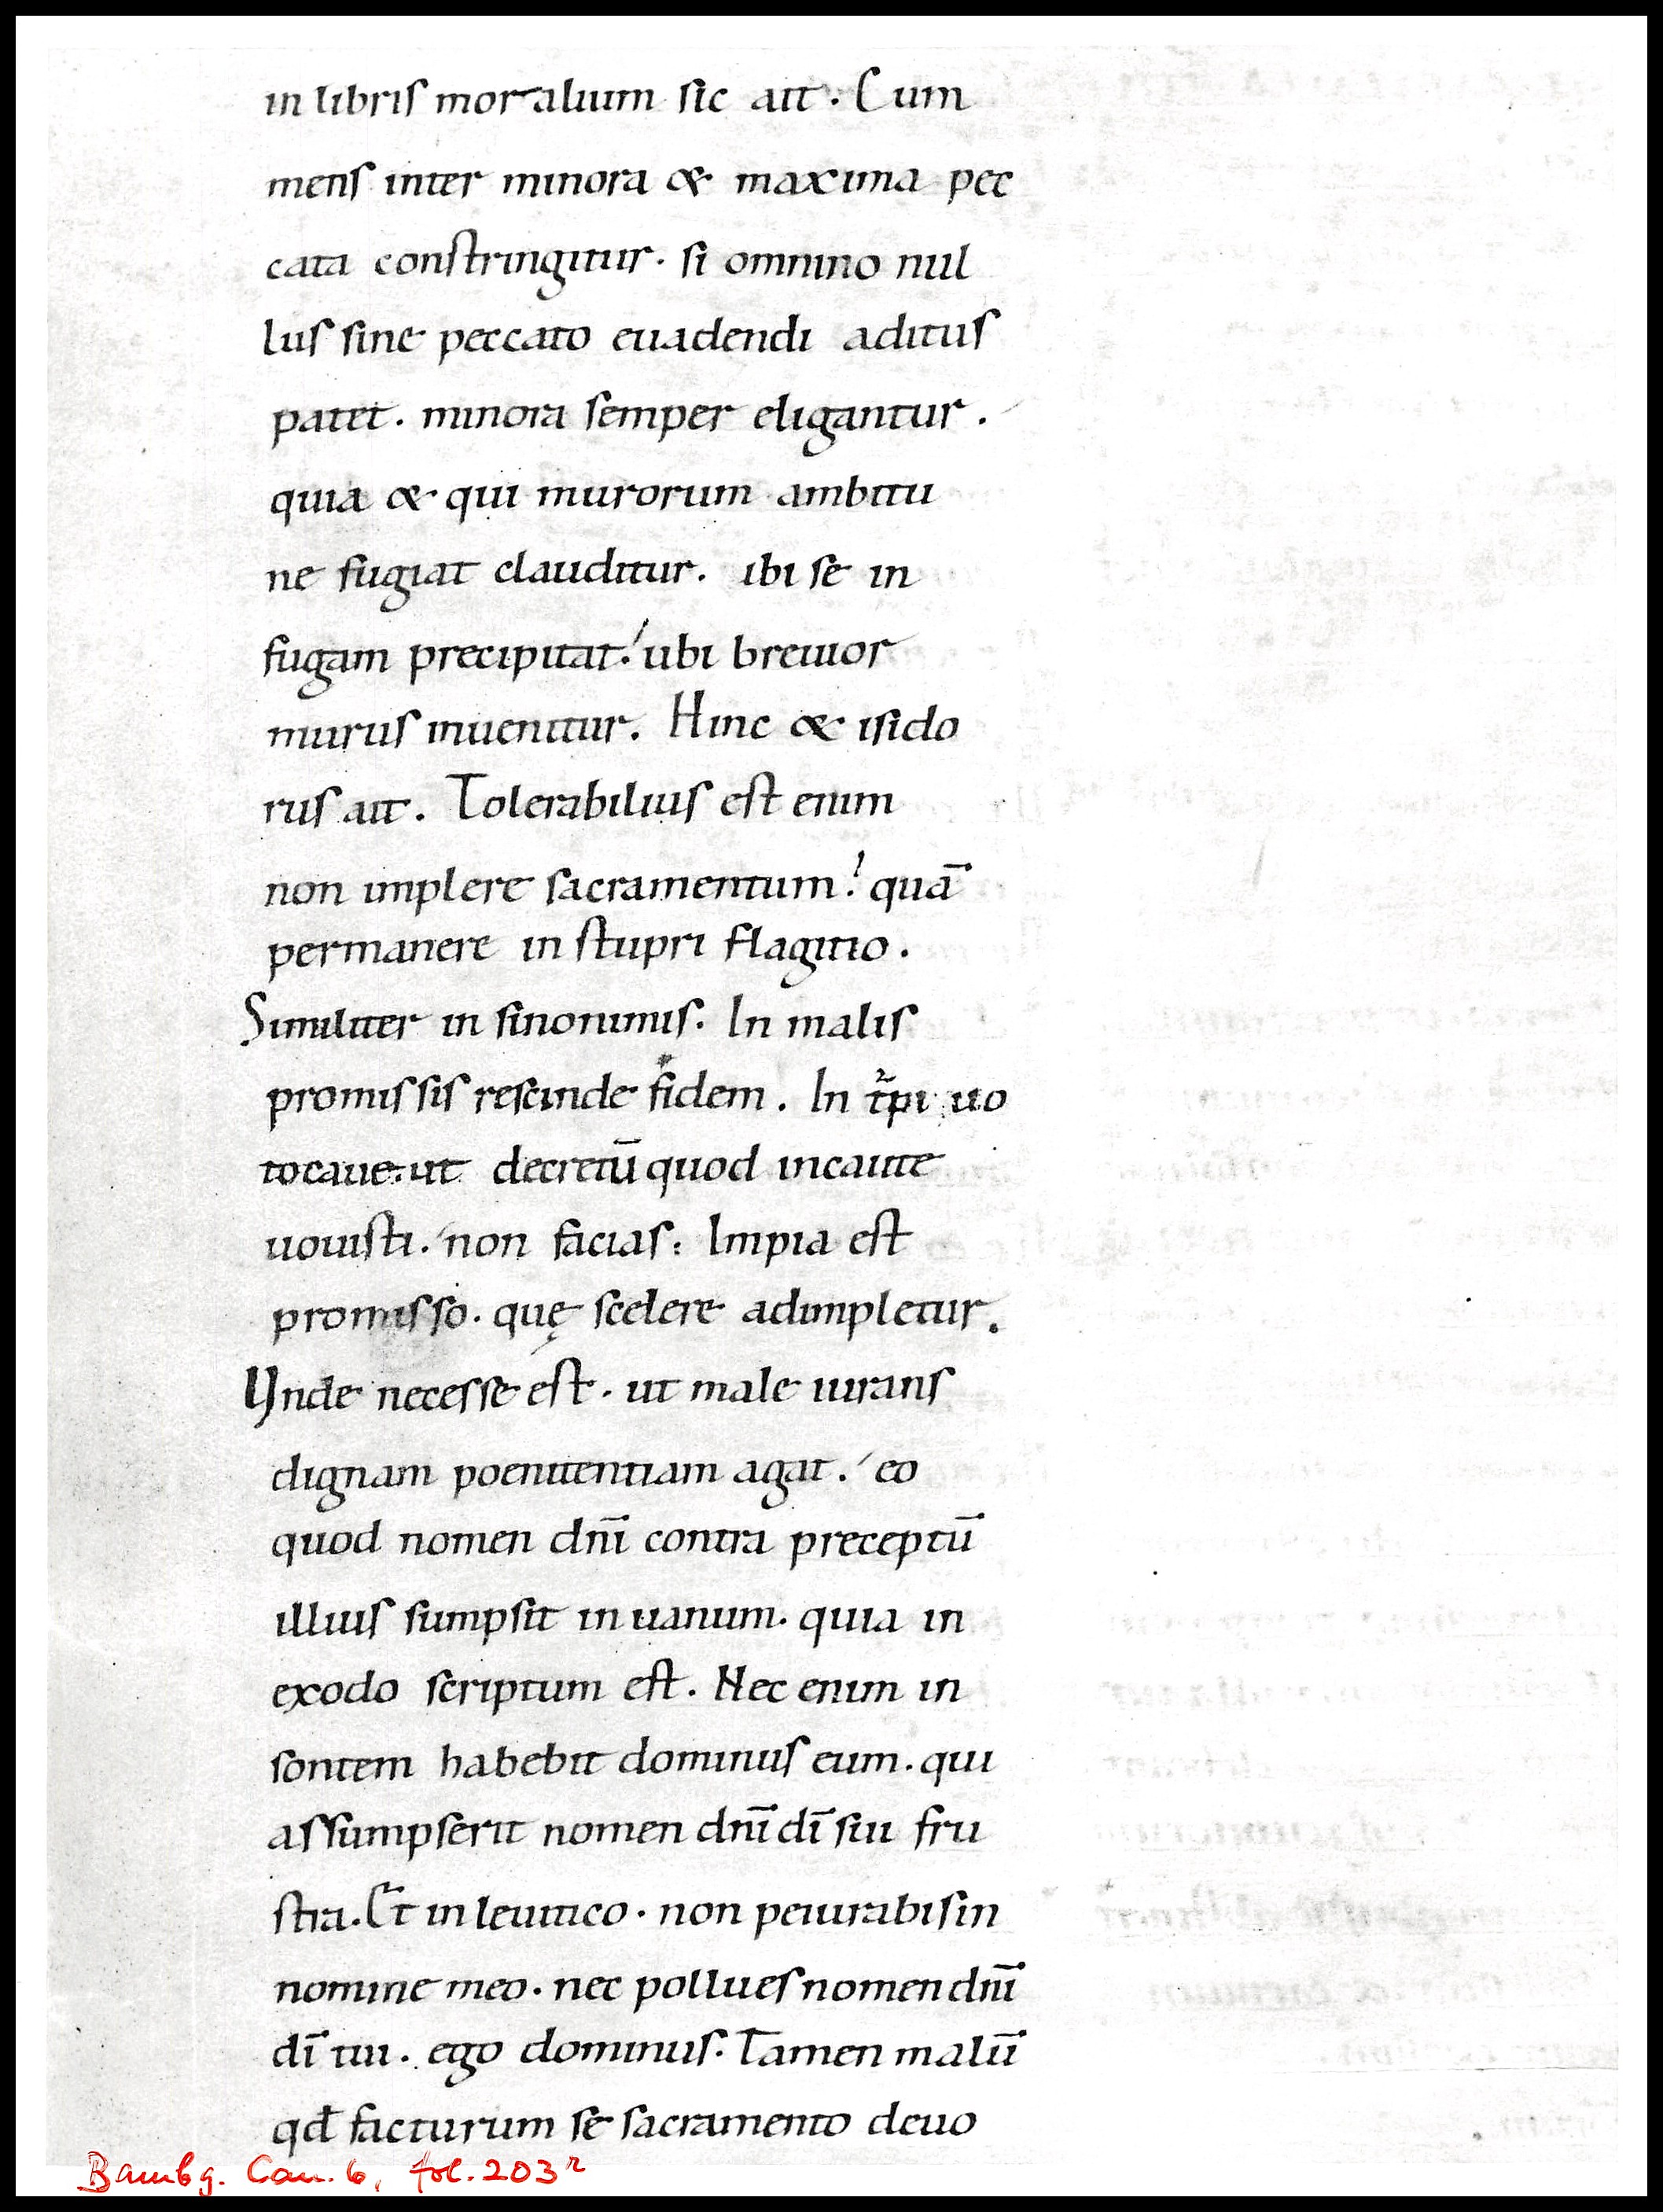 in libris moralium sic ait. Cum
mens inter minora & maxima pec
cata constringitur. si omnino nul
lus sine peccato euadendi aditus
patet. minora semper eligantur.
quia & qui murorum ambitu
ne fugiat clauditur. ibi se in
fugam precipitat. ubi breuior
murus inuenitur. Hinc & isido
rus ait. Tolerabilius est enim
non implere sacramentum. quā
permanere in stupri flagitio.
Similiter in sinonimis. In malis
promissis rescinde fidem. In t̄pi uo
to caue. ut decretū quod incaute
uouisti. non facias: Impia est
promisso. quę scelere adimpletur.
Unde necesse est. ut male iurans
dignam poenitentiam agat. eo
quod nomen dn̄i contra preceptū
illius sumpsit in uanum. quia in
exodo scriptum est. Nec enim in
sontem habebit dominus eum. qui
assumpserit nomen dn̄i dī sui fru
stra. Et in leuitico. non peiurabis in
nomine meo. nec pollues nomen dn̄i
dī tui. ego dominus. Tamen malū
qđ facturum se sacramento deuo
Bambg. Can. 6, fol. 203r